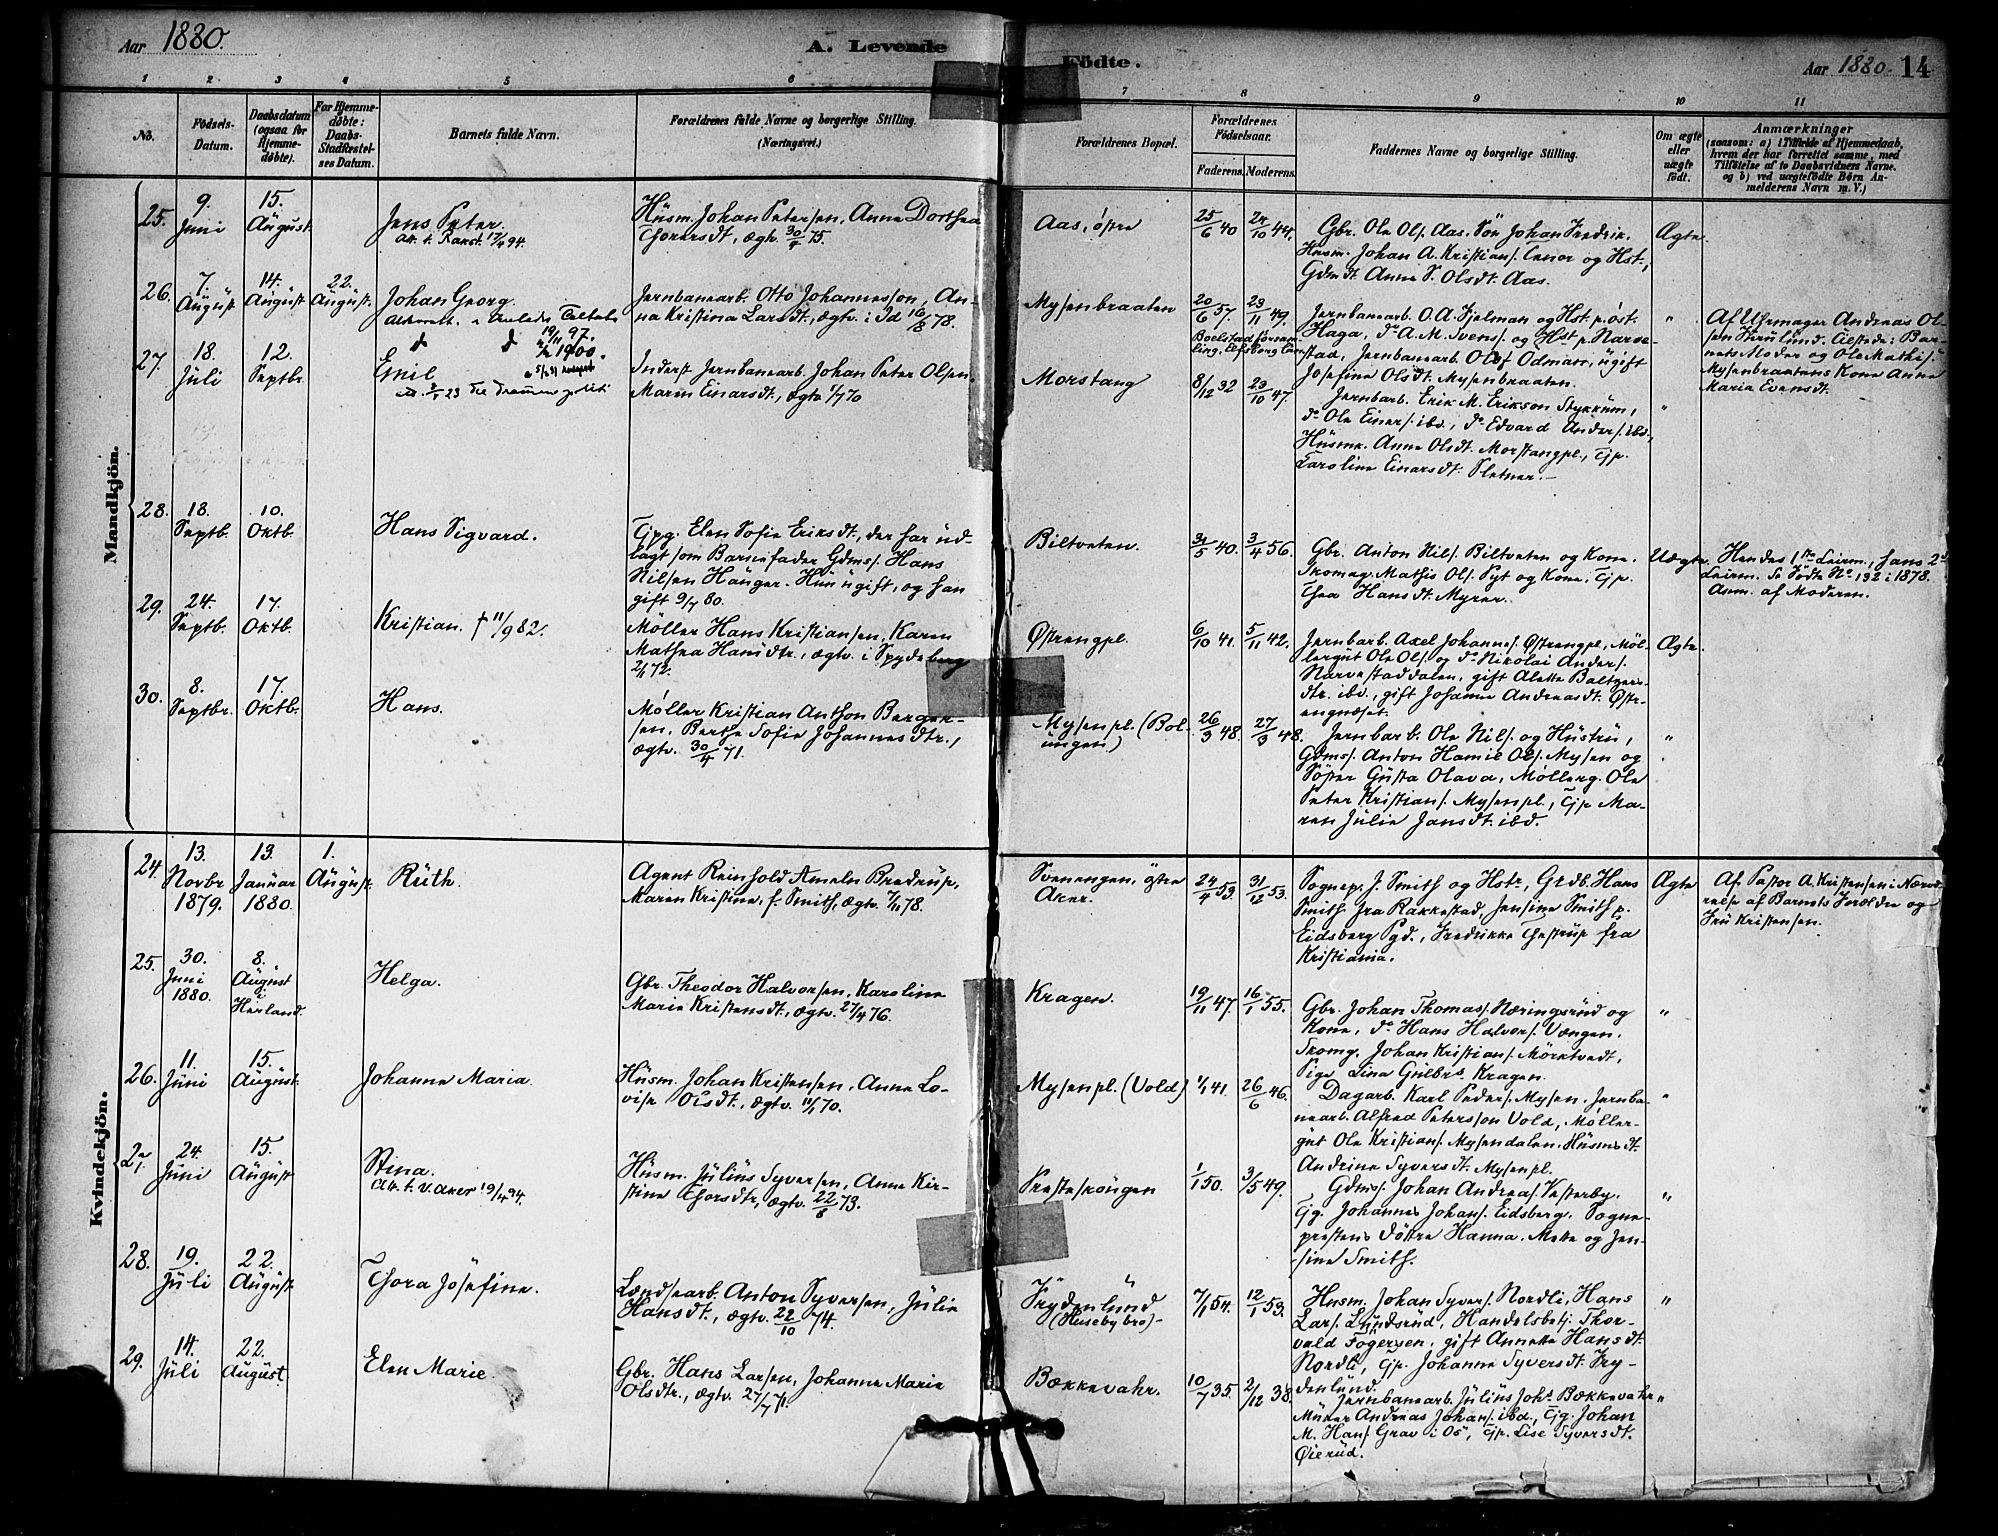 Aar 1880.
A. Levende
Fødte.
Aar 1880. 14
1 2 3 4 5 6 7 8 9 10 11
No.
Fødsels-
Datum.
Daabsdatum
(ogsaa for
Hjemme-
døbte).
For Hjemme-
døbte:
Daabs-
Stadfæstel-
ses Datum.
Barnets fulde Navn.
Forældrenes fulde Navne og borgerlige Stilling.
(Næringsvei.)
Forældrenes Bopæl.
Forældrenes
Fødselsaar.
Faderens. Moderens.
Faddernes Navne og borgerlige Stilling.
Om ægte
eller
uægte
født.
Anmærkninger
(saasom: a) i Tilfælde af Hjemmedaab,
hvem der har forrettet samme, med
Tilføielse af to Daabsvidners Navne,
og b) ved uægtefødte Børn An-
melderens Navn m. V.)
Mandkjön.
25.
9.
Juni
15.
August
Jens Peter.
Att. t. 17/9 94.
Husm. Johan Petersen, Anne Dorthea
Thorersdt, ægtv. 75.
Aas, østre
25/6 40
24/10 44.
Gbr. Ole Ols. Aas. Søn Johan Fredrik.
Husm. Johan A. Kristians. Tenor og Hst.,
Gdmdt Anne S. Olsdt Aas.
Ægte.
26.
7.
August
14.
August
22.
August.
Johan Georg.
19/11 97.
1900.
Jernbanearb. Otto Johannesson, An-
na Kristina Larsdt, ægtv. i Id 16/8 78.
Mysenbraaten
20/6 57.
23/11 49.
Jernbanearb. O. A. Hjelman og Hst p. øst.
Haga, do A. M. Svens/. og Hst p. Narve-
stad, Jernbanearb. Olof Odman, ugift
Josefine Olsdt. Mysenbraaten.
"
Af Uhrmager Andreas Ol-
sen Ternlund. Tilstede: Bar-
nets Moder og Ole Mathis/.
Mysenbraatens Kone Anne
Maria Evensdt.
27.
18.
Juli
12.
Septbr.
Emil
23 Til Drammen politi
Inderst Jernbanearb. Johan Peter Olsen
Maren Einarsdt, ægtv. 1/7 70
Morstang
8/12 32
23/10 47.
Jernbarb. Erik M. Erikson Stykkum,
do Ole Einer/. ibd., do Edvard Ander/. ibd.,
Husmk. Anne Olsdt. Morstangpl., Tjp.
Karoline Einarsdt. Sletner.—
"
28.
18.
Septb.
10.
Oktb.
Hans Sigvard.
Tjpg. Elen Sofie Eriksdt., der har ud-
lagt som Barnefader Gdms/. Hans
Nilsen Hauger. Hun ugift, og han
gift 9/7 80.
Biltveten.
40.
3/4 56.
Gbr. Anton Nils/. Biltveten og Kone.
Skomag. Mathis Ols/. Syt og Kone, Tjp.
Thea Hansdt. Myrer.
Uægte
Hendes 1ste Leierm., hans 2det
Leierm. Se Fødte No 132 i 1878.
Anm. af Moderen.
29.
24.
Septb.
17.
Oktb.
Kristian. † 11/9 82.
Møller Hans Kristiansen, Karen
Mathea Hansdtr., ægtv. i Spydeberg
2/1 72.
Østrengpl.
6/10 41.
5/11 42.
Jernbarb. Axel Johanne/. Østrengpl., Møl-
lergut Ole Ols/. og do Nikolai Ander/.
Narvestaddalen, gift Alette Baltzers-
dtr. ibd., gift Johanne Andreasdt. Øst-
rengnæset.
Ægte.
30.
8.
Septbr.
17.
Oktb.
Hans.
Møller Kristian Anthon Berger-
sen, Berthe Sofie Johannesdtr.,
ægtv. 30/4 71.
Mysenpl. (Bol-
ungen)
26/3 48.
27/3 48.
Jernbarb. Ole Nils/. og Hustru,
Gdms/. Anton Hamil Ols/. Mysen og
Søster Gusta Olava, Møllerg. Ole
Peter Kristians/. Mysenpl., Tjp Ma-
ren Julie Jansdt. ibd.
"
Kvindekjön.
24.
13.
Novbr
1879.
13.
Januar
1880.
1.
August.
Ruth.
Agent Reinhold Ameln Bredrup,
Maren Kristine, f. Smith, ægtv. 1/11 78.
Svenengen, østre
Aker.
24/4 53.
31/12 53.
Sognep. J. Smith og Hstr, Grdb. Hans
Smith fra Rakkestad, Jensine Smith p.
Eidsberg Pgd., Fredrikke Thestrup fra
Kristiania.
Ægte
Af Pastor A. Kristensen i Nærvæ-
relse af Barnets Forældre og
Fru Kristensen.
25.
30.
Juni
1880.
8.
August
i
Herland.
Helga.
Gbr. Theodor Halvorsen, Karoline
Marie Kristensdt., ægtv. 27/4 76.
Kragen.
19/11 47.
16/1 55.
Gbr. Johan Thomas/. Næringsrud og
Kone, do Hans Halvors/. Vængen.
Skomg. Johan Kristians/. Mörktvedt,
Pige Lina Gulbrs. Kragen.
"
26.
11.
Juni
15.
August.
Johanne Maria.
Husm. Johan Kristensen, Anne Lo-
vise Olsdt., ægtv. 11/1 70.
Mysenpl. (Vold)
1/1 41.
26/6 46.
Dagarb. Karl Peders/. Mysen. Jernba-
nearb. Alfred Petersson Vold, Møller-
gut Ole Kristians/. Mysendalen. Husmsdt.
Andrine Syversdt. Mysenpl.
"
27.
24.
Juni
15.
August
Stina.
Att. t. V. Aker 19/4 94.
Husm. Julius Syversen, Anne Kir-
stine Thorsdtr, ægtv. 22/8 73.
Prestesköugen
1/1 50.
3/5 49.
Gdms/. Johan Andrea/. Vesterby.
Tjg. Johannes Johans/. Eidsberg, Sogne-
prestens Døttre Hanna, Mette og Jen-
sine Smith.
"
28.
19.
Juli
22.
August
Thora Josefine.
Landsearb. Anton Syversen, Julie
Hansdt., ægtv. 22/10 74.
Frydenlund
(Husebybro)-
7/1 54.
12/1 53.
Husm. Johan Syvers/. Nordli, Hans
Lars/. Lundsrud, Handelsbetj. Thor-
vald Fögersen, gift Annette Hansdt.
Nordli, Tjp. Johanne Syversdt. Fry-
denlund.
"
29.
14.
Juli
22.
August.
Elen Marie.
Gbr. Hans Larsen, Johanne Marie
Olsdtr., ægtv. 27/7 71.
Bækkevahr.
10/7 35.
2/12 38.
Jernbanearb. Julius Johs. Bækkevahr
Murer Andreas Johans/. ibd., Tjg. Johan
M. Hans/. Grav i Os, Tjp. Lise Syversdt.
Øierud.
"